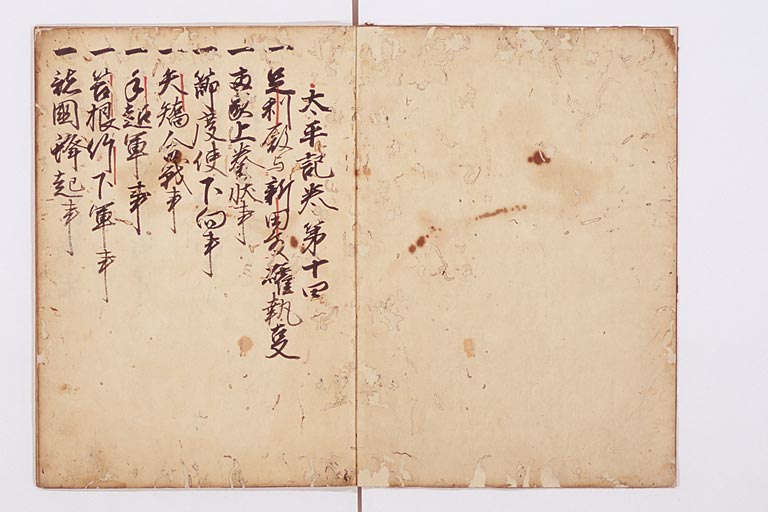 太平記卷第十四
一 足利殿与新田殿確執事
一 両家上奏状事
一 節度使下向事
一 矢矯合戦事
一 手超軍事
一 筥根竹下軍事
一 諸國蜂起事